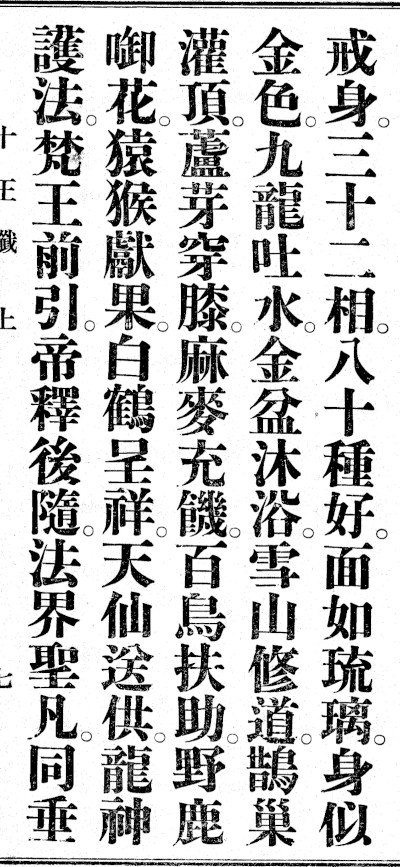 戒身。三十二相。八十種好。面如琉璃。身似
金色。九龍吐水。金盆沐浴。雪山修道。鵲巢
灌頂。蘆芽穿膝。麻麥充饑。百鳥扶助。野鹿
啣花。猿猴獻果。白鶴呈祥。天仙送供。龍神
護法。梵王前引。帝釋後隨。法界聖凡。同垂
十王懺上 七